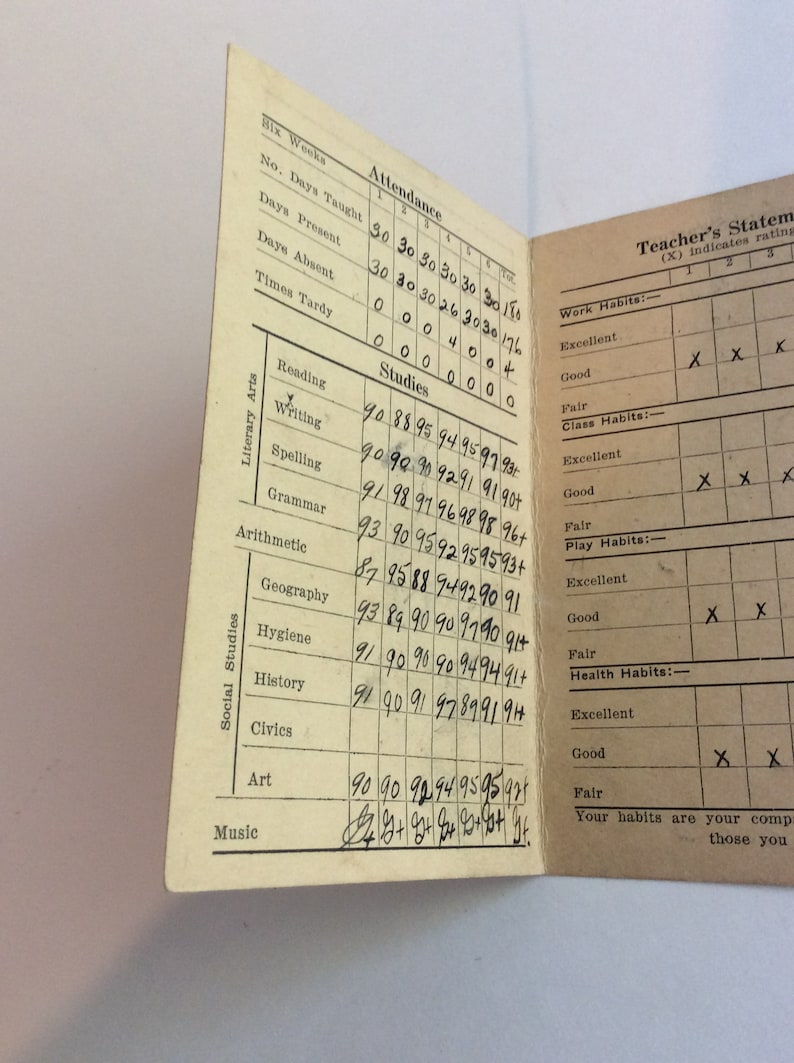 Attendance
Six Weeks 1 2 3 4 5 6 Tot.
No. Days Taught 30 30 30 30 30 30 180
Days Present 30 30 30 26 30 30 176
Days Absent 0 0 0 4 0 0 4
Times Tardy 0 0 0 0 0 0 0
Studies
Literary Arts
Reading 90 88 95 94 95 97 93+
Writing 90 90 90 92 91 91 90+
x
Spelling 91 98 97 96 98 98 96+
Grammar 93 90 95 92 95 95 93+
Arithmetic 87 95 88 94 92 90 91
Social Studies
Geography 93 89 90 90 97 90 91+
Hygiene 91 90 90 90 94 94 91+
History 91 90 91 97 89 91 91+
Civics
Art 90 90 92 94 95 95 92+
Music G+ G+ G+ G+ G+ G+ G+
Teacher's Statem
(X) indicates rating
1 2 3
Work Habits:—
Excellent
Good X X X
Fair
Class Habits:—
Excellent
Good X X X
Fair
Play Habits:—
Excellent
Good X X
Fair
Health Habits:—
Excellent
Good X X
Fair
Your habits are your comp
those you